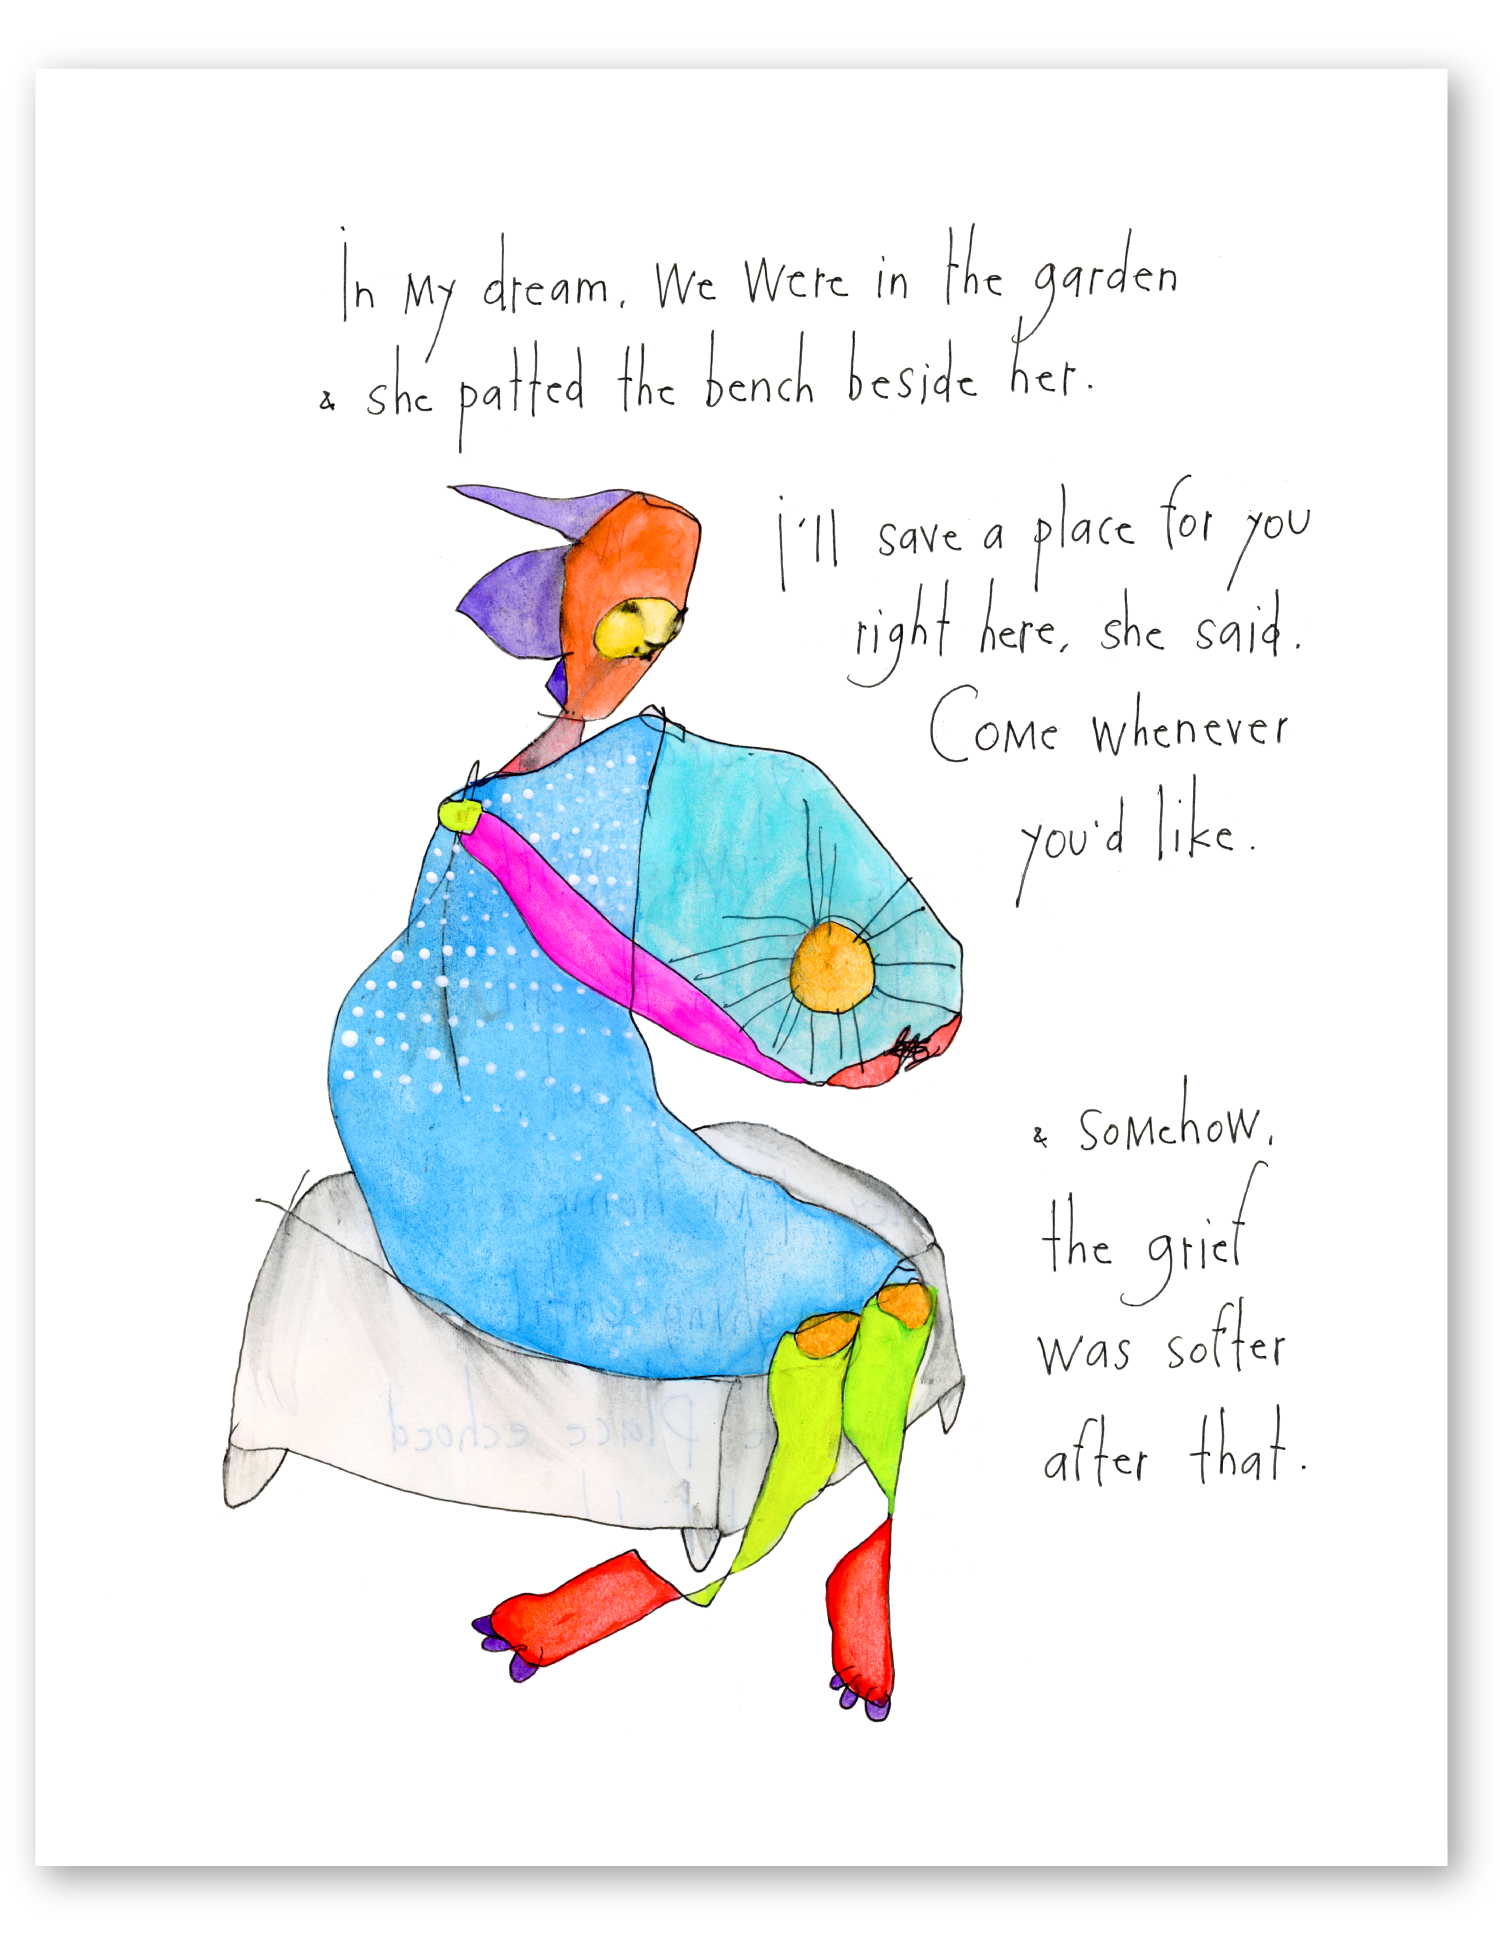 In my dream, we were in the garden
& she patted the bench beside her.
i'll save a place for you
right here, she said.
Come whenever
you'd like.
& somehow,
the grief
was softer
after that.
Place echoed